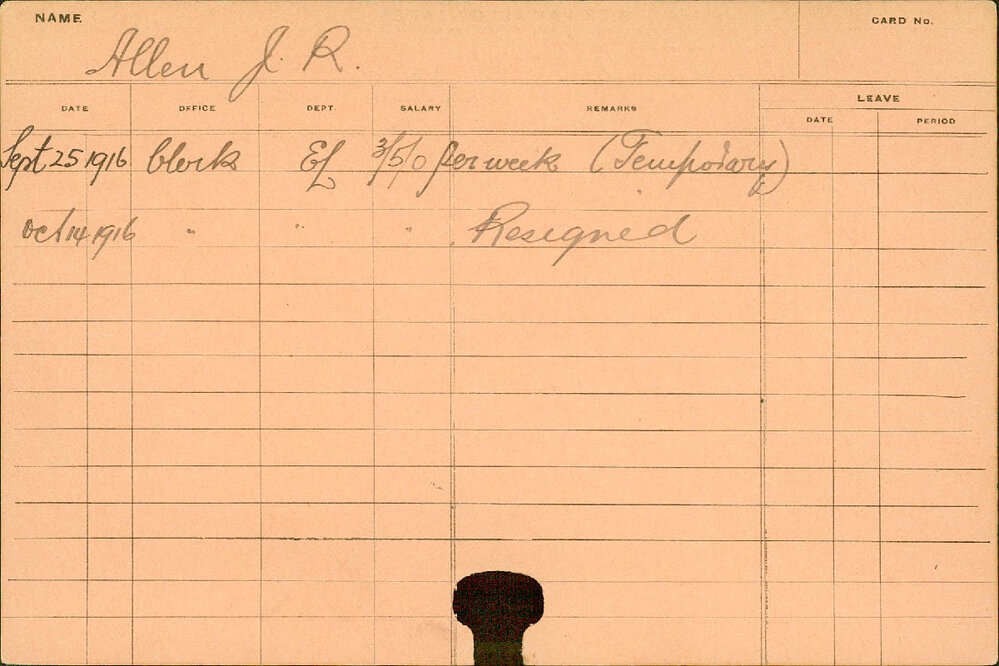 NAME
CARD No.
Allen J. R.
DATE OFFICE DEPT. SALARY REMARKS LEAVE
DATE PERIOD
Sept 25 1916 Clerk EL 3/5/0 per week (Temporary)
Oct 14 1916 " " " Resigned